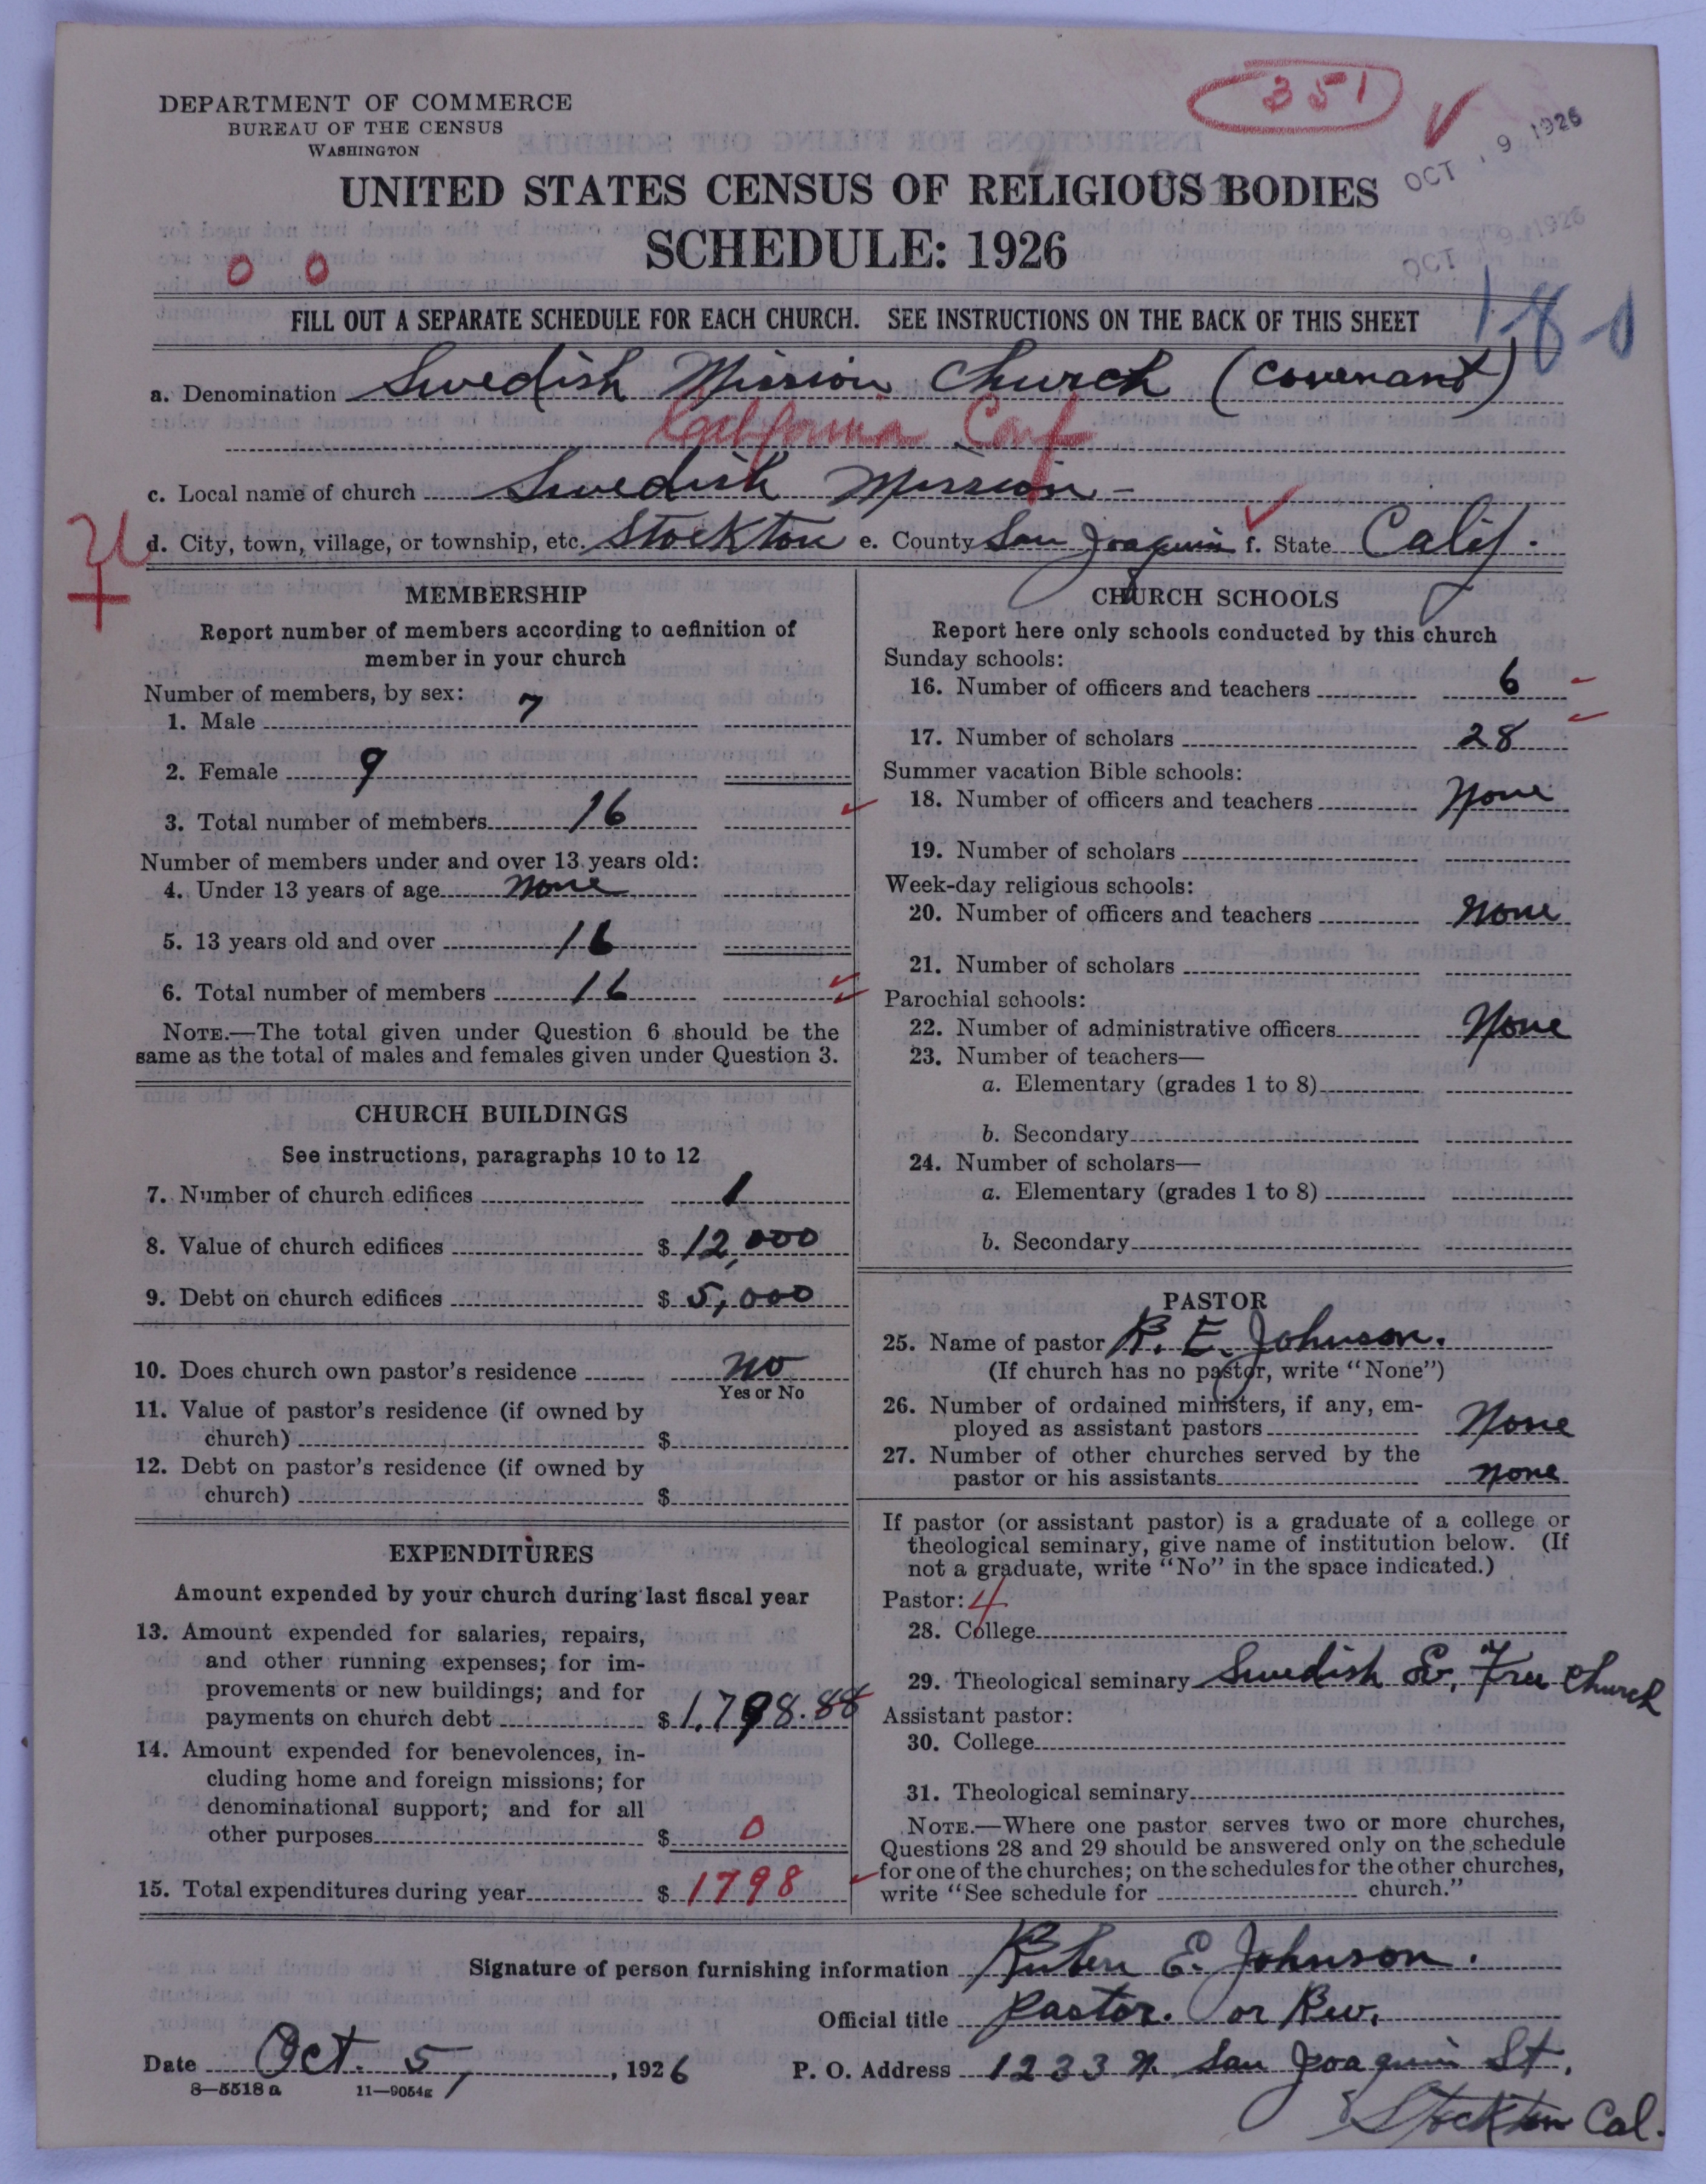 351
DEPARTMENT OF COMMERCE
BUREAU OF THE CENSUS
WASHINGTON
OCT 9 1926
UNITED STATES CENSUS OF RELIGIOUS BODIES
SCHEDULE: 1926
OCT 9 1926
0 0
FILL OUT A SEPARATE SCHEDULE FOR EACH CHURCH. SEE INSTRUCTIONS ON THE BACK OF THIS SHEET
1-8-1
a. Denomination Swedish Mission Church (Covenant)
California Conf
c. Local name of church Swedish Mission
d. City, town, village, or township, etc. Stockton e. County San Joaquin f. State Calif.
MEMBERSHIP
Report number of members according to definition of
member in your church
Number of members, by sex:
1. Male 7
2. Female 9
3. Total number of members 16
Number of members under and over 13 years old:
4. Under 13 years of age none
5. 13 years old and over 16
6. Total number of members 16
NOTE.—The total given under Question 6 should be the
same as the total of males and females given under Question 3.
CHURCH BUILDINGS
See instructions, paragraphs 10 to 12
7. Number of church edifices 1
8. Value of church edifices $ 12,000
9. Debt on church edifices $ 5,000
10. Does church own pastor's residence no
Yes or No
11. Value of pastor's residence (if owned by
church) $
12. Debt on pastor's residence (if owned by
church) $
EXPENDITURES
Amount expended by your church during last fiscal year
13. Amount expended for salaries, repairs,
and other running expenses; for im-
provements or new buildings; and for
payments on church debt $ 1,798.88
14. Amount expended for benevolences, in-
cluding home and foreign missions; for
denominational support; and for all
other purposes $ 0
15. Total expenditures during year $ 1798
CHURCH SCHOOLS
Report here only schools conducted by this church
Sunday schools:
16. Number of officers and teachers 6
17. Number of scholars 28
Summer vacation Bible schools:
18. Number of officers and teachers None
19. Number of scholars
Week-day religious schools:
20. Number of officers and teachers None
21. Number of scholars
Parochial schools:
22. Number of administrative officers None
23. Number of teachers—
a. Elementary (grades 1 to 8)
b. Secondary
24. Number of scholars—
a. Elementary (grades 1 to 8)
b. Secondary
PASTOR
25. Name of pastor R. E. Johnson.
(If church has no pastor, write "None")
26. Number of ordained ministers, if any, em-
ployed as assistant pastors None
27. Number of other churches served by the
pastor or his assistants none
If pastor (or assistant pastor) is a graduate of a college or
theological seminary, give name of institution below. (If
not a graduate, write "No" in the space indicated.)
Pastor: 4
28. College
29. Theological seminary Swedish Ev. Free Church
Assistant pastor:
30. College
31. Theological seminary
NOTE.—Where one pastor serves two or more churches,
Questions 28 and 29 should be answered only on the schedule
for one of the churches; on the schedules for the other churches,
write "See schedule for church."
Signature of person furnishing information Ruben E. Johnson.
Official title Pastor. or Rev.
Date Oct. 5, 1926 P. O. Address 1233 N. San Joaquin St.
8—5518a 11—9054g
Stockton Cal.